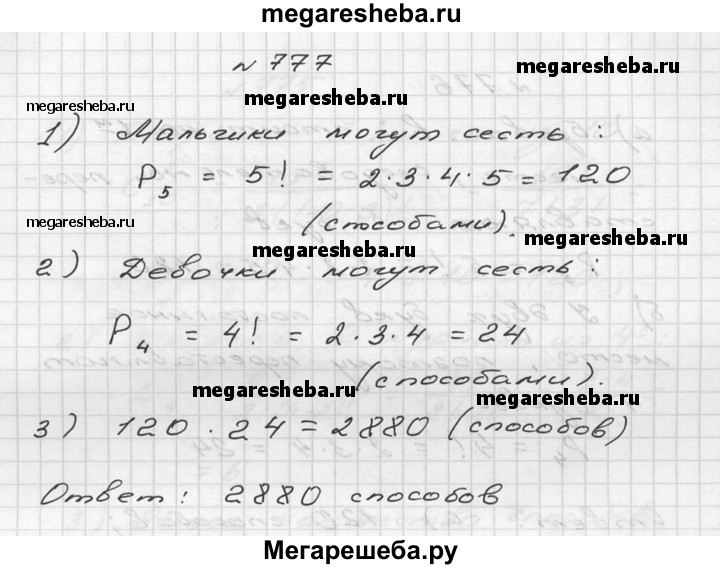 megaresheba.ru
№ 777
megaresheba.ru
megaresheba.ru
1) Мальчики могут сесть:
P5 = 5! = 2·3·4·5 = 120
megaresheba.ru
(способами).
megaresheba.ru
megaresheba.ru
2) Девочки могут сесть:
P4 = 4! = 2·3·4 = 24
(способами).
megaresheba.ru
megaresheba.ru
3) 120·24 = 2880 (способов)
Ответ: 2880 способов
Мегарешеба.ру